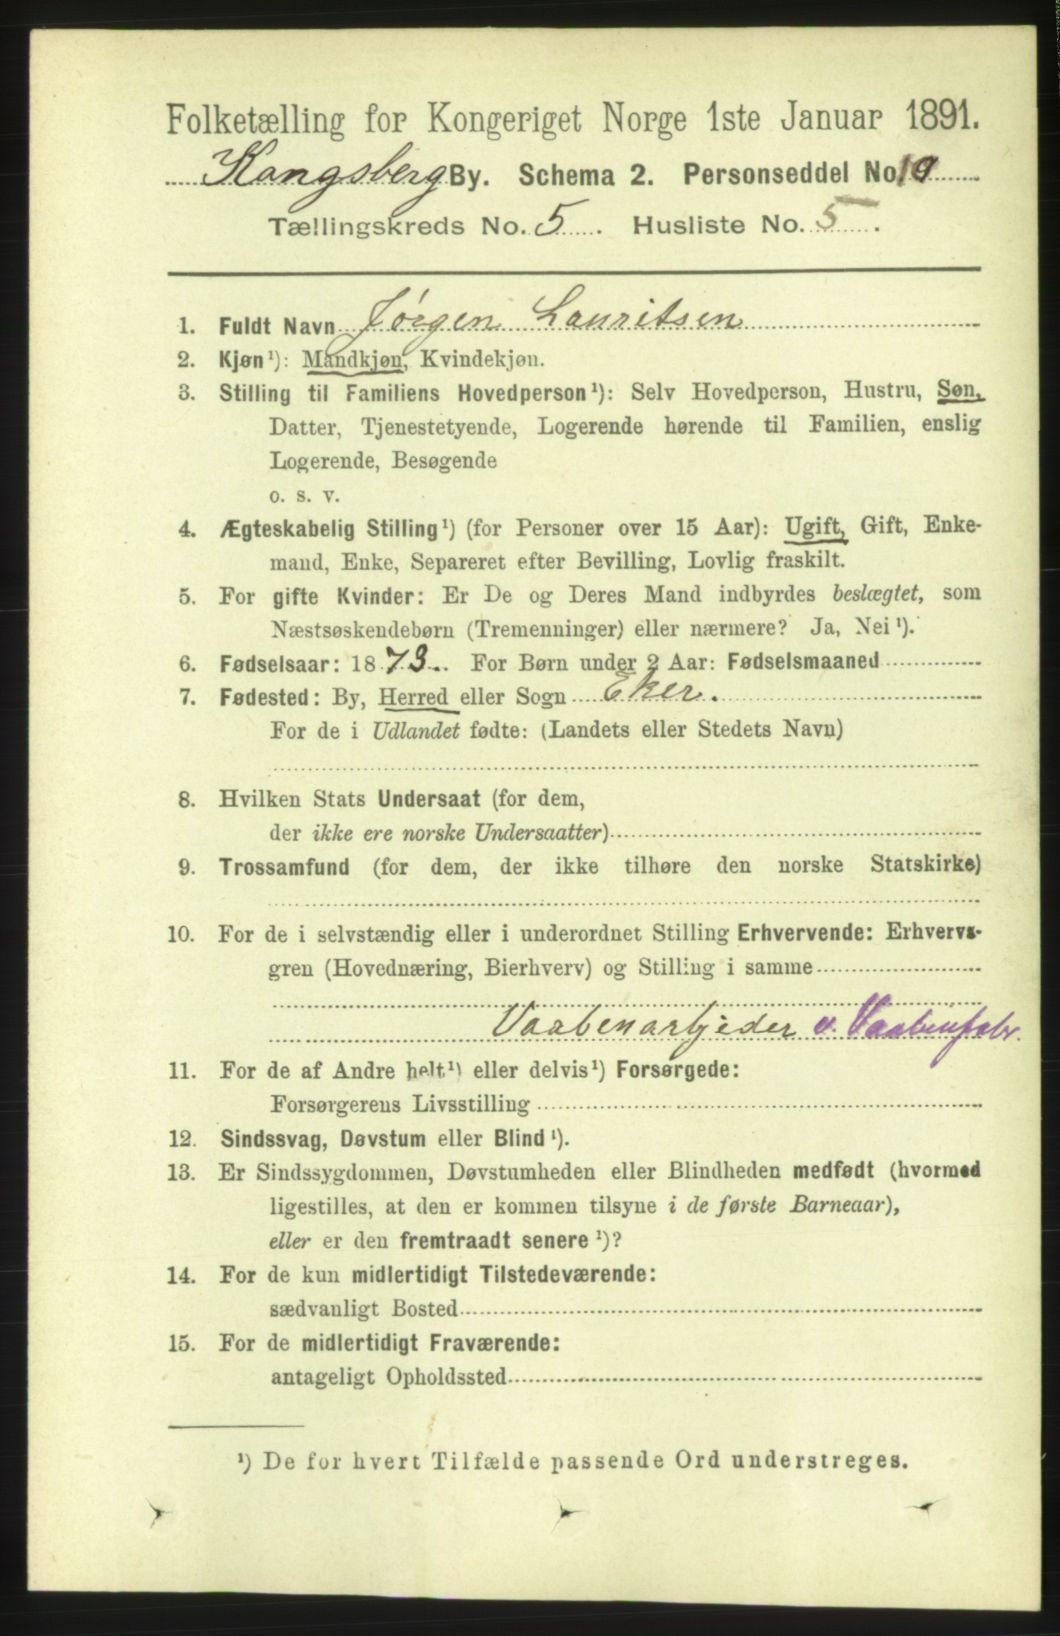 Folketælling for Kongeriget Norge 1ste Januar 1891.
Kongsberg By. Schema 2. Personseddel No. 10
Tællingskreds No. 5. Husliste No. 5.
1. Fuldt Navn Jørgen Lauritsen
2. Kjøn¹): Mandkjøn, Kvindekjøn.
3. Stilling til Familiens Hovedperson¹): Selv Hovedperson, Hustru, Søn,
Datter, Tjenestetyende, Logerende hørende til Familien, enslig
Logerende, Besøgende
o. s. v.
4. Ægteskabelig Stilling¹) (for Personer over 15 Aar): Ugift, Gift, Enke-
mand, Enke, Separeret efter Bevilling, Lovlig fraskilt.
5. For gifte Kvinder: Er De og Deres Mand indbyrdes beslægtet, som
Næstsøskendebørn (Tremenninger) eller nærmere? Ja, Nei¹).
6. Fødselsaar: 1873. For Børn under 2 Aar: Fødselsmaaned
7. Fødested: By, Herred eller Sogn Eker.
For de i Udlandet fødte: (Landets eller Stedets Navn)
8. Hvilken Stats Undersaat (for dem,
der ikke ere norske Undersaatter)
9. Trossamfund (for dem, der ikke tilhøre den norske Statskirke)
10. For de i selvstændig eller i underordnet Stilling Erhvervende: Erhvervs-
gren (Hovednæring, Bierhverv) og Stilling i samme
Vaabenarbjeder v. Vaabenfabr.
11. For de af Andre helt¹) eller delvis¹) Forsørgede:
Forsørgerens Livsstilling
12. Sindssvag, Døvstum eller Blind¹).
13. Er Sindssygdommen, Døvstumheden eller Blindheden medfødt (hvormed
ligestilles, at den er kommen tilsyne i de første Barneaar),
eller er den fremtraadt senere¹)?
14. For de kun midlertidigt Tilstedeværende:
sædvanligt Bosted
15. For de midlertidigt Fraværende:
antageligt Opholdssted
¹) De for hvert Tilfælde passende Ord understreges.